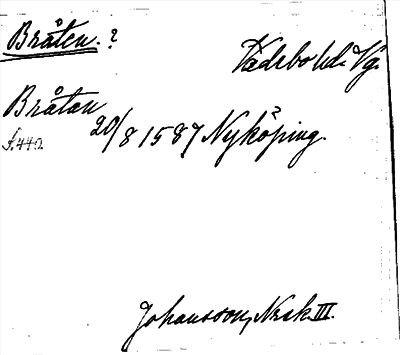 Bråten. ?
Vadsbo hd. Vg.
Bråtan
20/8 1587 Nyköping
Johansson, Noak III.